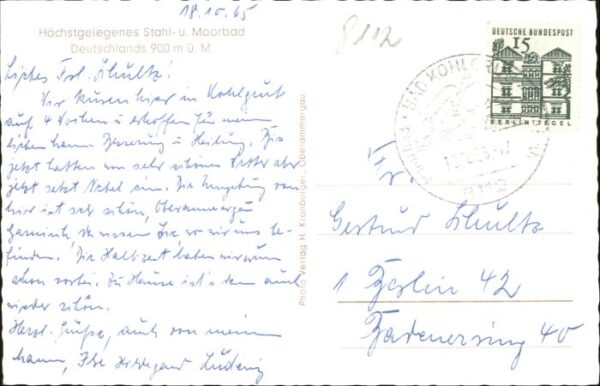 18.10.65
Höchstgelegenes Stahl- u. Moorbad
Deutschlands 900 m ü. M.
Liebes Frl. Schultz!
Wir kuren hier in Kohlgrub
auf 4 Wochen u. erhoffen für meinen
lieben Mann Besserung u. Heilung. Bis
jetzt hatten wir sehr schönes Wetter aber
jetzt setzt Nebel ein. Die Umgebung von
hier ist sehr schön, Oberammergau
Garmisch, da wissen Sie wo wir uns be-
finden. Die Halbzeit haben wir nun
schon vorbei. Zu Hause ist's dann auch
wieder schön.
Herzl. Grüße, auch von meinem
Mann, Ihre Hildegard Ludwig
Photo-Verlag H. Kronburger, Oberammergau
8112
DEUTSCHE BUNDESPOST
15
BERLIN-TEGEL
BAD KOHLGRUB
8112
Gertrud Schultz
1 Berlin 42
40